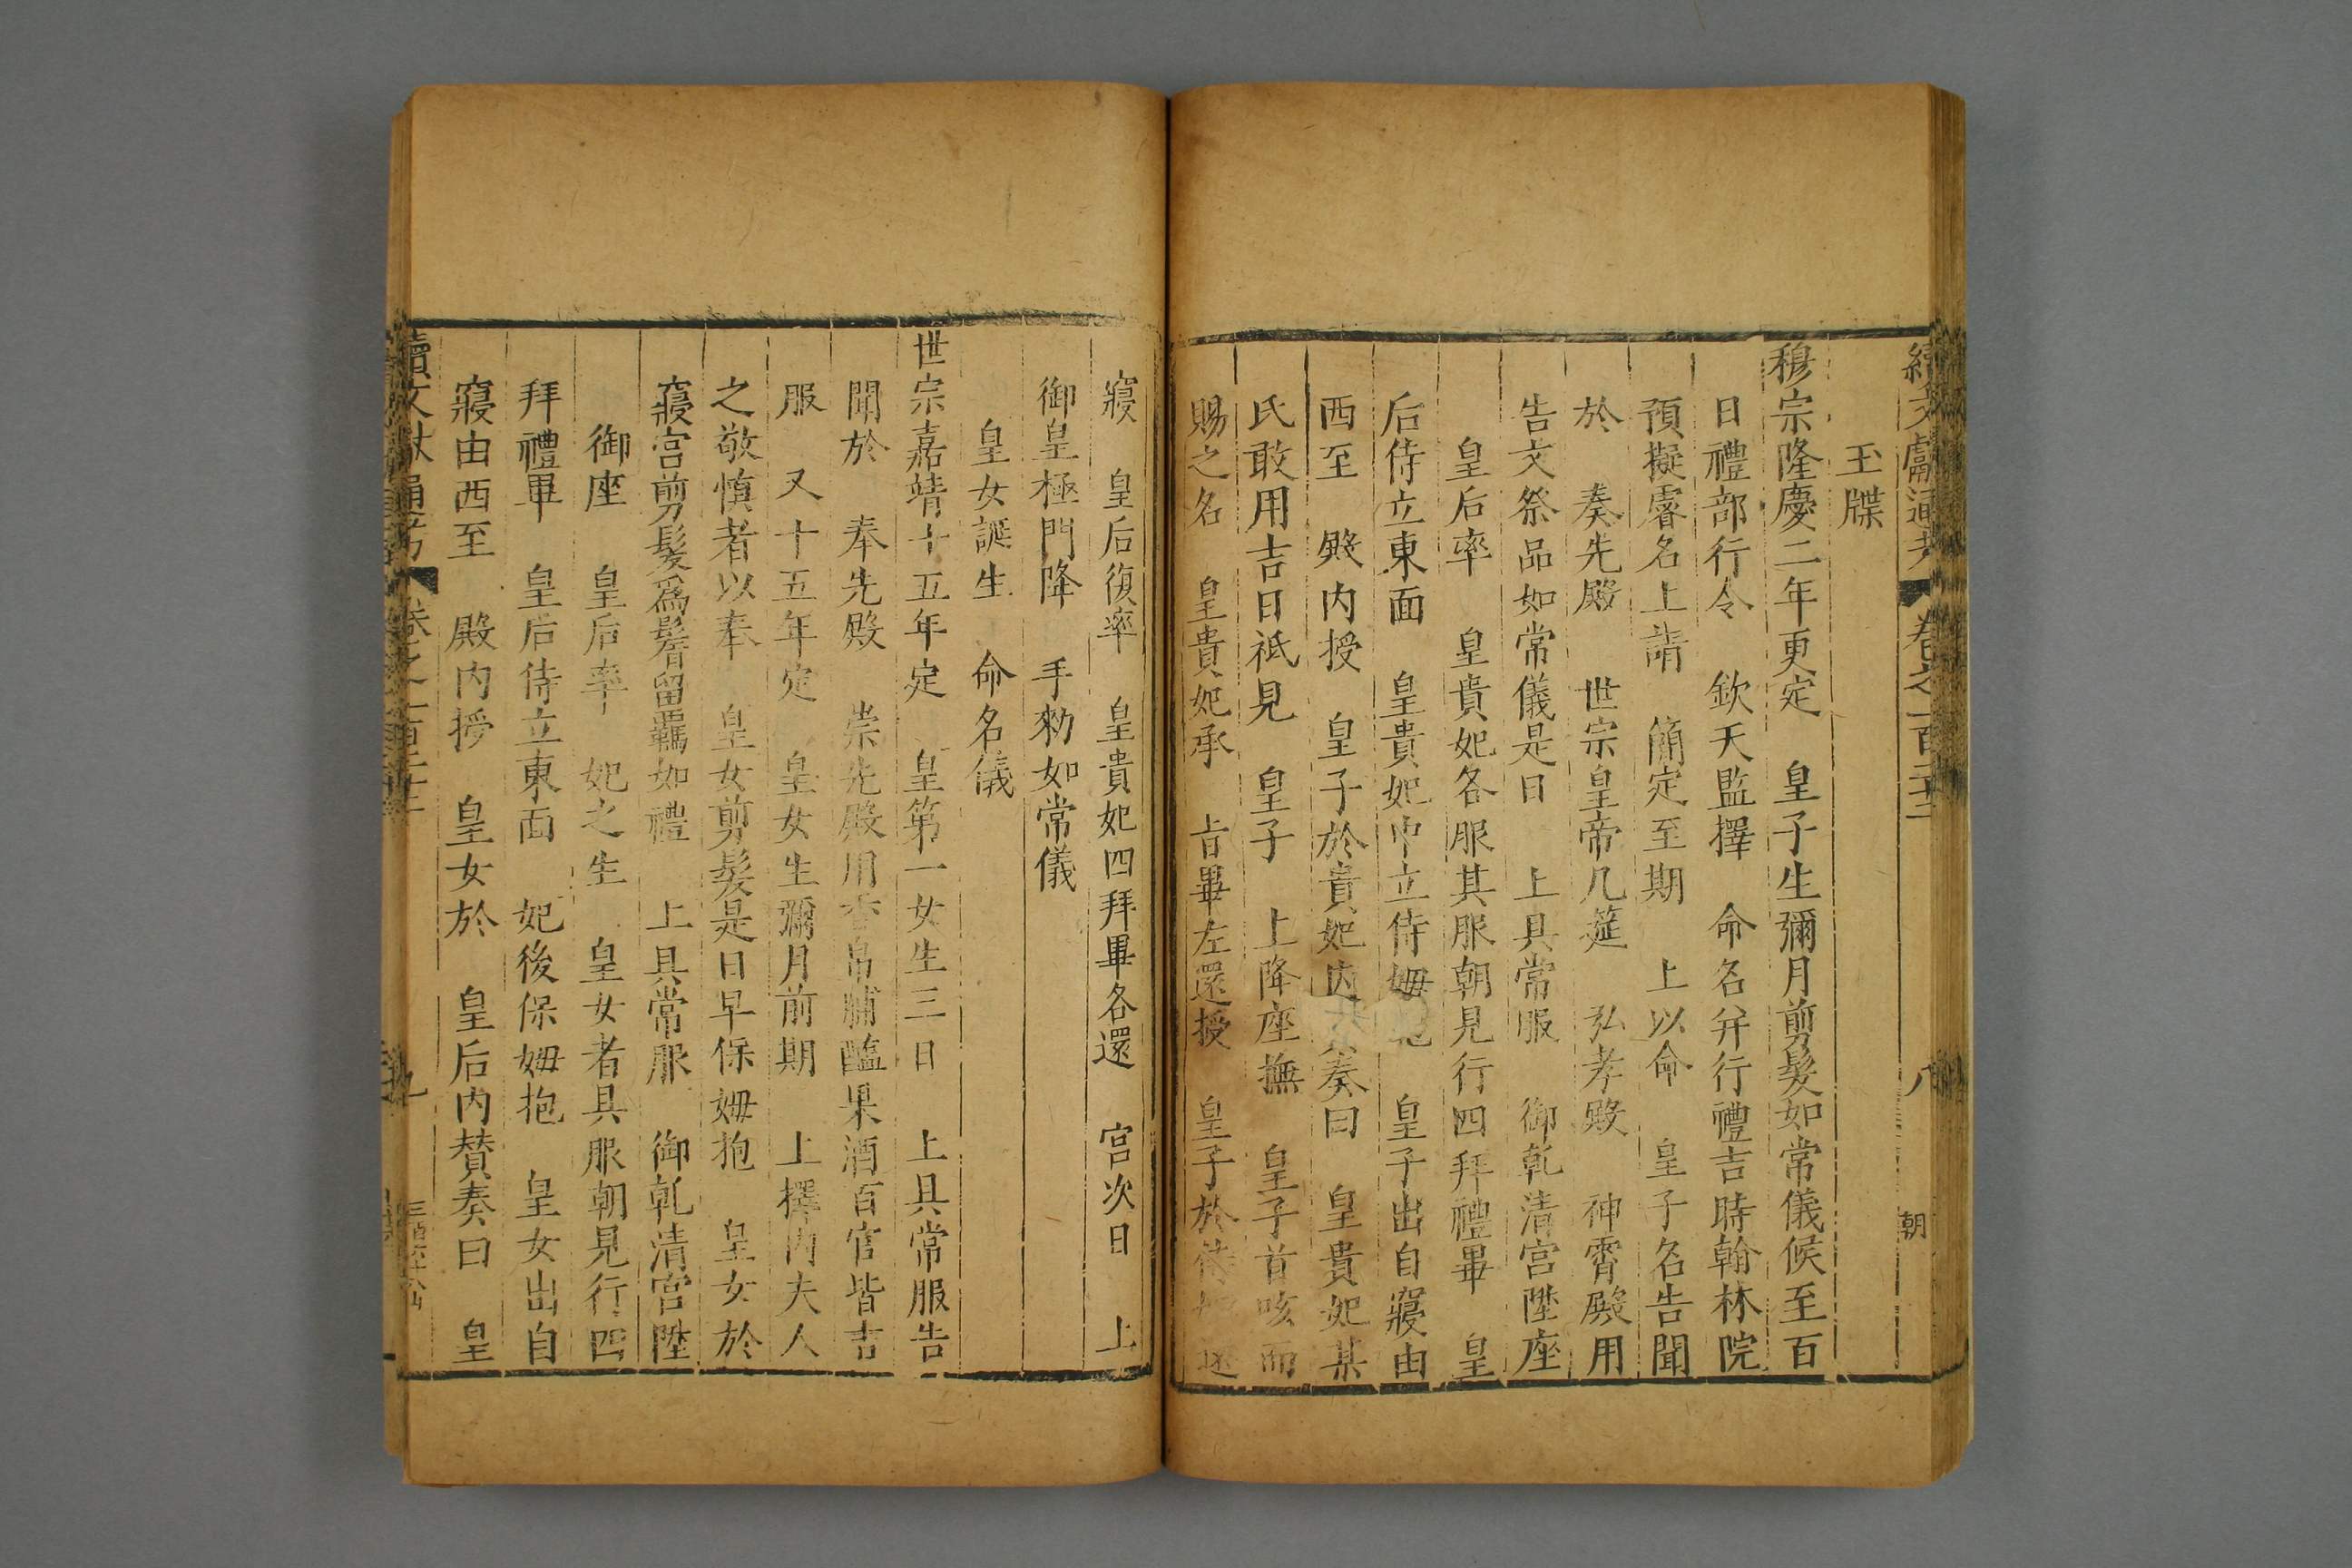 續文獻通考 卷之一百二十二 八 朝
玉牒
穆宗隆慶二年更定 皇子生彌月剪髮如常儀候至百
日禮部行令 欽天監擇 命名并行禮吉時翰林院
預擬睿名上請 簡定至期 上以命 皇子名告聞
於 奏先殿 世宗皇帝几筵 弘孝殿 神霄殿用
告文祭品如常儀是日 上具常服 御乾清宮陞座
皇后率 皇貴妃各服其服朝見行四拜禮畢 皇
后侍立東面 皇貴妃中立侍姆 皇子出自寢由
西至 殿內授 皇子於貴妃內 奏曰 皇貴妃某
氏敢用吉日祗見 皇子 上降座撫 皇子首咳而
賜之名 皇貴妃承 旨畢左還授 皇子於
寢 皇后復率 皇貴妃四拜畢各還 宮次日 上
御皇極門降 手勑如常儀
皇女誕生 命名儀
世宗嘉靖十五年定 皇第一女生三日 上具常服告
聞於 奉先殿 崇先殿用香帛脯醢果酒百官皆吉
服 又十五年定 皇女生彌月前期 上擇內夫人
之敬慎者以奉 皇女剪髮是日早保姆抱 皇女於
寢宮剪髮爲鬌留羈如禮 上具常服 御乹清宮陞
御座 皇后率 妃之生 皇女者具服朝見行四
拜禮畢 皇后侍立東面 妃後保姆抱 皇女出自
寢由西至 殿內授 皇女於 皇后內賛奏曰 皇
續文獻通考 卷之一百二十二 九